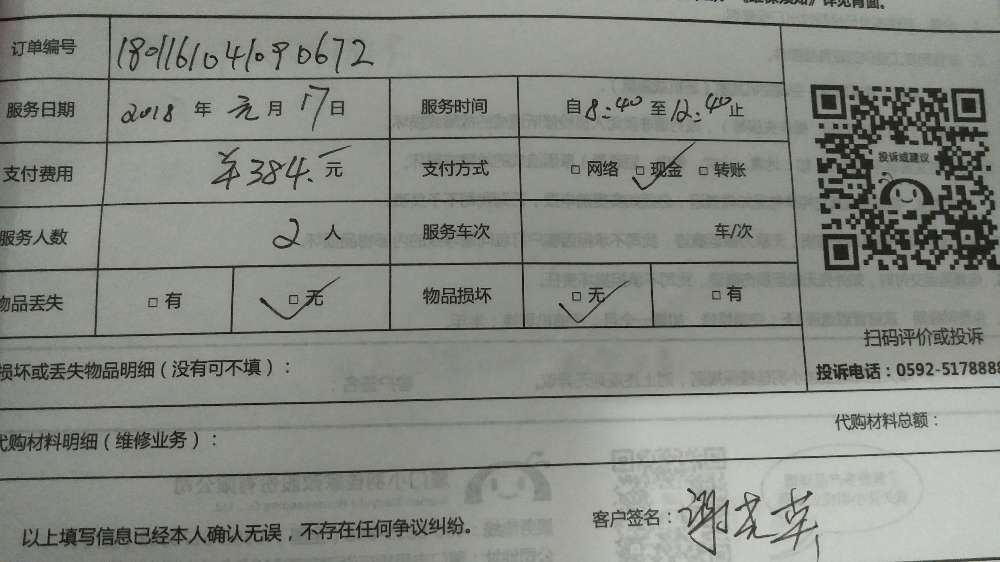 《维保须知》详见背面。
订单编号 1801161041090672
服务日期 2018 年 元 月 17 日 服务时间 自 8:40 至 12:40 止
支付费用 ¥384.- 元 支付方式 □ 网络 □ 现金 □ 转账
服务人数 2 人 服务车次 车/次
物品丢失 □ 有 □ 无 物品损坏 □ 无 □ 有
投诉或建议
扫码评价或投诉
损坏或丢失物品明细(没有可不填):
投诉电话:0592-5178888
代购材料明细(维修业务):
代购材料总额:
以上填写信息已经本人确认无误,不存在任何争议纠纷。
客户签名:谢